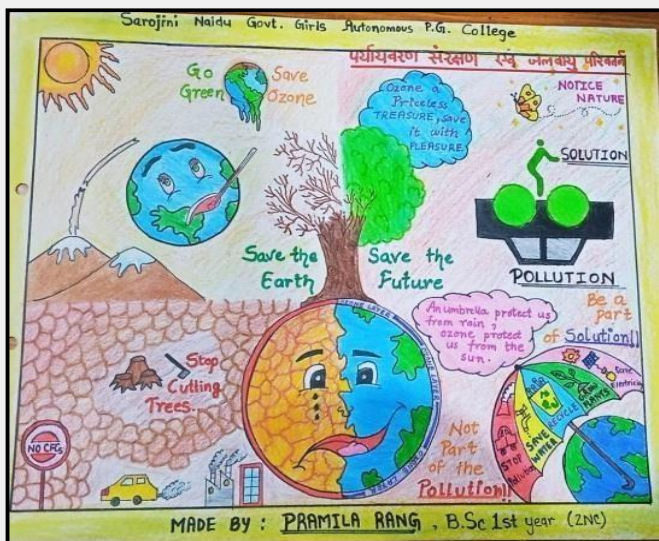 Sarojini Naidu Govt. Girls Autonomous P.G. College
पर्यायवरण संरक्षण एवं जलवायु परिवर्तन
Go
Green
Save
Ozone
Ozone a
Priceless
TREASURE, save
it with
PLEASURE
NOTICE
NATURE
SOLUTION
POLLUTION
Save the
Earth
Save the
Future
Be a
part
of Solution!!
An umbrella protect us
from rain,
ozone protect
us from the
sun.
Stop
Cutting
Trees..
NO CFCs
OZONE LAYER
OZONE LAYER
OZONE LAYER
Not
Part
of the
Pollution!!
STOP
Pollution
SAVE
WATER
RECYCLE
GROW
PLANTS
Save
Electricity
MADE BY : PRAMILA RANG , B.Sc 1st year (ZNC)